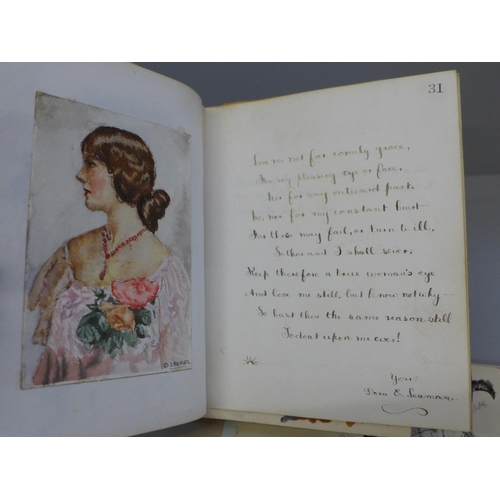 31
Love me not for comely grace,
For my pleasing eye or face,
Nor for any outward part,
No, nor for my constant heart—
For those may fail, or turn to ill,
So thou and I shall sever.
Keep therefore a true woman's eye
And love me still, but know not why—
So hast thou the same reason still
To doat upon me ever!
Your
Dora E. Seaman.